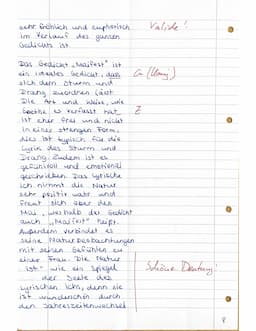 sehr fröhlich und euphorisch
im Verlauf des ganzen
Gedichts ist.
Valide!
Das Gedicht „Maifest" ist
ein ideales Gedicht, dass
sich dem Sturm und
Drang zuordnen lässt.
Die Art und Weise, wie
Goethe es verfasst hat
ist eher frei und nicht
in einer strengen Form,
dies ist typisch für die
Lyrik des Sturm und
Drang. Zudem ist es
gefühlvoll und emotional
geschrieben. Das lyrische
Ich nimmt die Natur
sehr positiv wahr und
freut sich über den
Mai, weshalb der Gedicht
auch „Maifest" heißt.
Außerdem verbindet es
seine Naturbeobachtungen
mit seinen Gefühlen zu
einer Frau. Die Natur
ist wie ein Spiegel
der Seele des
Lyrischen Ich, denn sie
ist wunderschön durch
den Jahreszeitenwechsel
G
Z
Schöne Deutung!